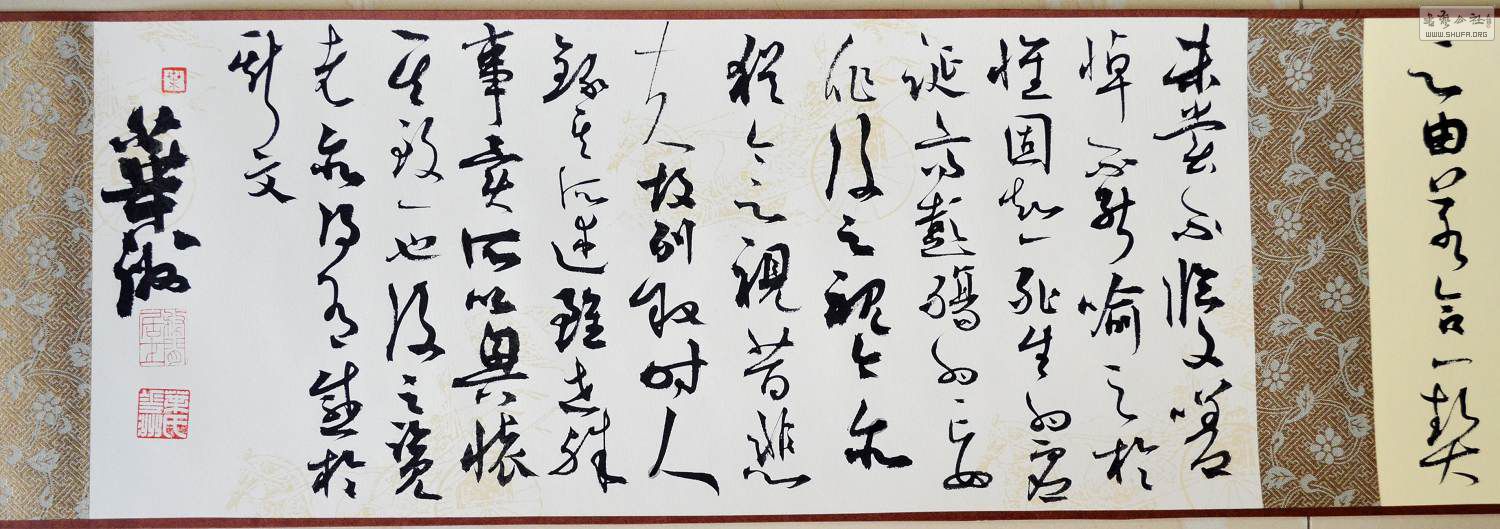 之由若合一契
未嘗不臨文嗟
悼不能喻之於
懷固知一死生為虛
誕齊彭殤為妄
作後之視今亦
猶今之視昔悲
夫故列叙時人
錄其所述雖世殊
事異所以興懷
其致一也後之覽
者亦將有感於
斯文
WWW.SHUFA.ORG